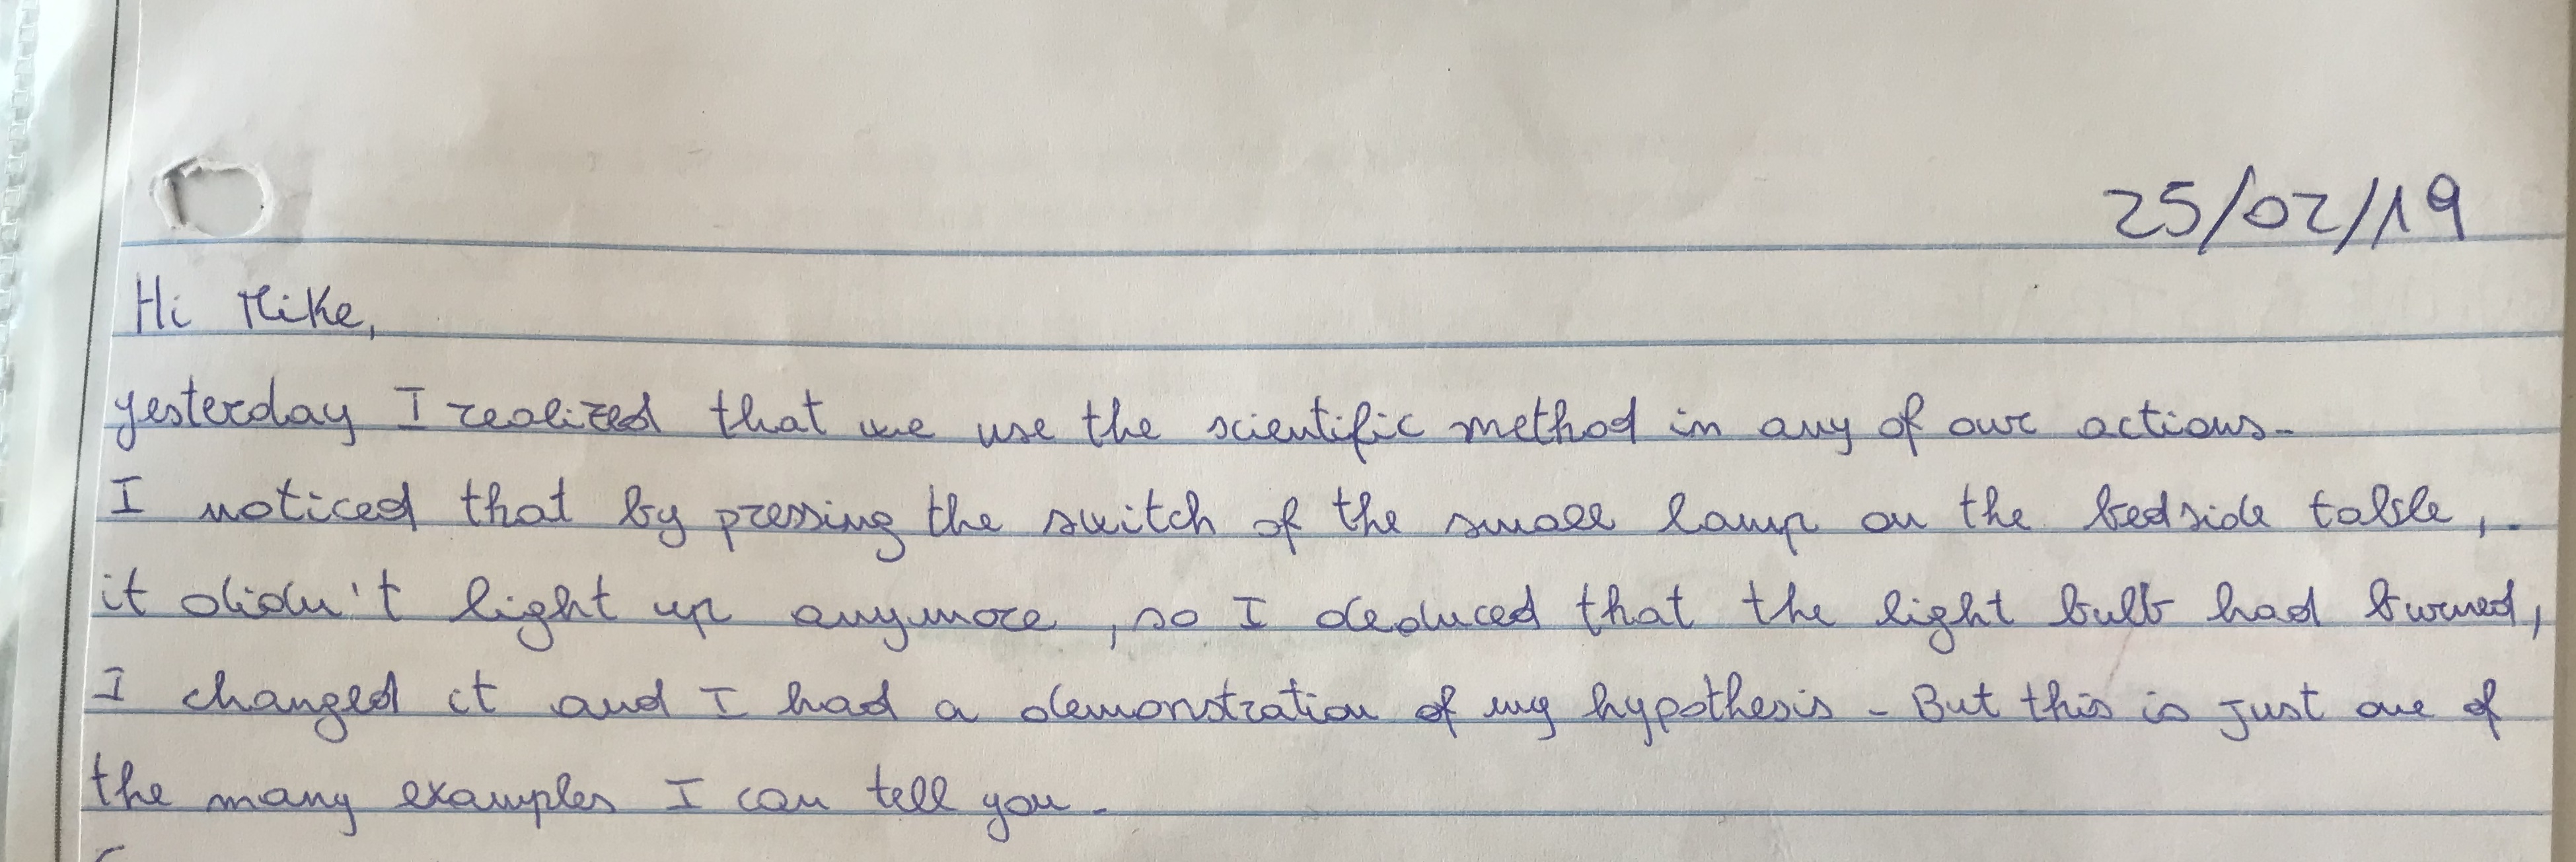 25/02/19
Hi Mike,
yesterday I realized that we use the scientific method in any of our actions.
I noticed that by pressing the switch of the small lamp on the bedside table,
it didn't light up anymore, so I deduced that the light bulb had burned,
I changed it and I had a demonstration of my hypothesis. But this is just one of
the many examples I can tell you.